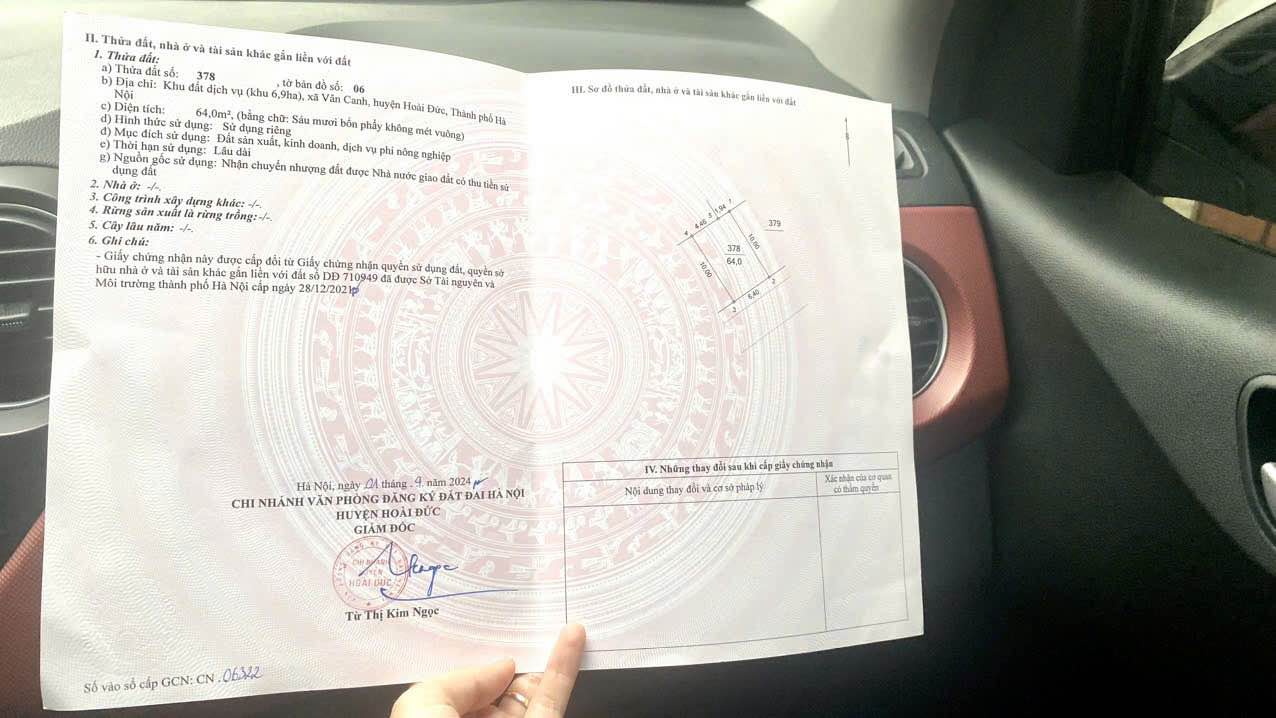 II. Thửa đất, nhà ở và tài sản khác gắn liền với đất
1. Thửa đất:
a) Thửa đất số: 378 , tờ bản đồ số: 06
b) Địa chỉ: Khu đất dịch vụ (khu 6,9ha), xã Vân Canh, huyện Hoài Đức, Thành phố Hà
Nội
c) Diện tích: 64,0m², (bằng chữ: Sáu mươi bốn phẩy không mét vuông)
d) Hình thức sử dụng: Sử dụng riêng
đ) Mục đích sử dụng: Đất sản xuất, kinh doanh, dịch vụ phi nông nghiệp
e) Thời hạn sử dụng: Lâu dài
g) Nguồn gốc sử dụng: Nhận chuyển nhượng đất được Nhà nước giao đất có thu tiền sử
dụng đất
2. Nhà ở: -/-.
3. Công trình xây dựng khác: -/-.
4. Rừng sản xuất là rừng trồng: -/-.
5. Cây lâu năm: -/-.
6. Ghi chú:
- Giấy chứng nhận này được cấp đổi từ Giấy chứng nhận quyền sử dụng đất, quyền sở
hữu nhà ở và tài sản khác gắn liền với đất số DĐ 710949 đã được Sở Tài nguyên và
Môi trường thành phố Hà Nội cấp ngày 28/12/2021
Hà Nội, ngày tháng .9. năm 2024
CHI NHÁNH VĂN PHÒNG ĐĂNG KÝ ĐẤT ĐAI HÀ NỘI
HUYỆN HOÀI ĐỨC
GIÁM ĐỐC
CHI NHÁNH
HUYỆN
HOÀI ĐỨC
Từ Thị Kim Ngọc
Số vào sổ cấp GCN: CN .06322
III. Sơ đồ thửa đất, nhà ở và tài sản khác gắn liền với đất
B
4 4,46 5 1,94 1
379
378
64,0
10,00
10,00
3 6,40 2
IV. Những thay đổi sau khi cấp giấy chứng nhận
Nội dung thay đổi và cơ sở pháp lý
Xác nhận của cơ quan
có thẩm quyền